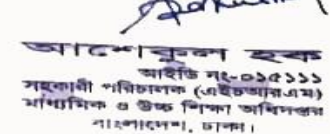 আশেকুল হক
আইডি নং-০১৫১১১
সহকারী পরিচালক (এইচআরএম)
মাধ্যমিক ও উচ্চ শিক্ষা অধিদপ্তর
বাংলাদেশ, ঢাকা।